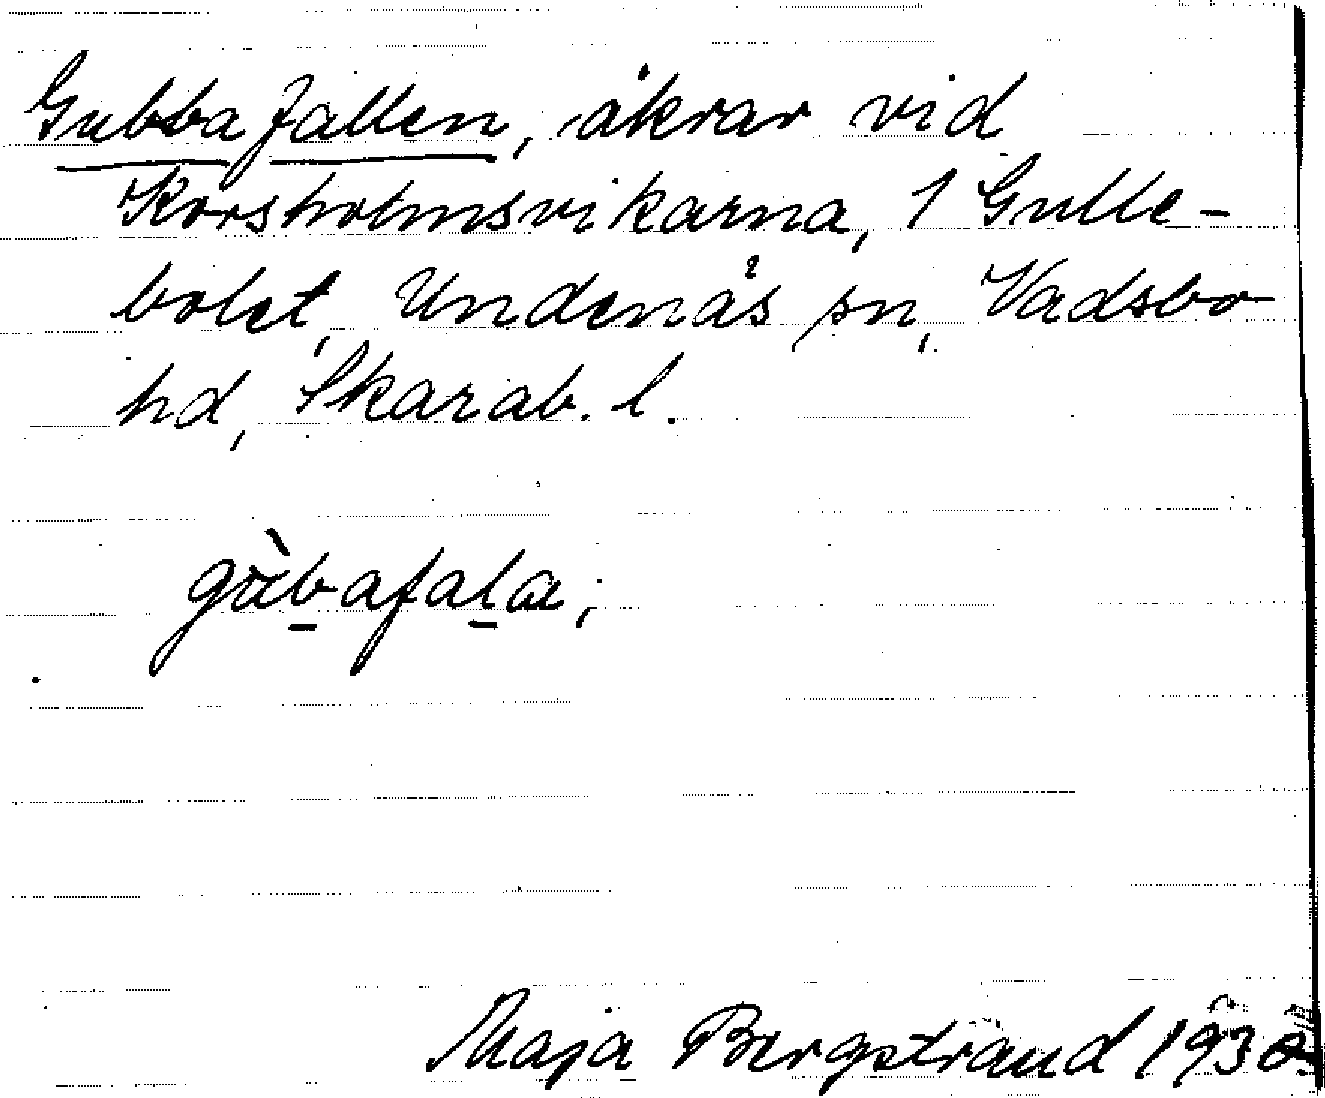 Gubbafallen, åkrar vid
Korsholmsvikarna, 1 Gulle-
bolet, Undenäs sn, Vadsbo
hd, Skarab. l.
Maja Bergstrand 1930